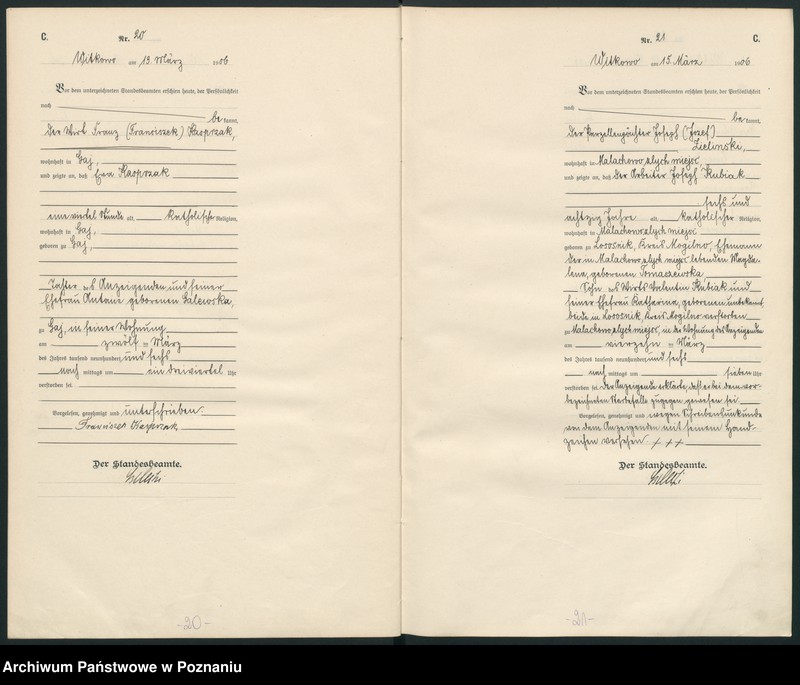 C.
Nr. 20
Witkowo am 13. März 1906
Vor dem unterzeichneten Standesbeamten erschien heute, der Persönlichkeit
nach
be kannt,
der Wirt Franz (Franciszek) Kasprzak,
wohnhaft in Gaj,
und zeigte an, daß Ewa Kasprzak
eine viertel Stunde alt, katholischer Religion,
wohnhaft in Gaj,
geboren zu Gaj,
Tochter des Anzeigenden und seiner
Ehefrau Antonie geborenen
zu Gaj, in seiner Wohnung
am zwölf ten März
des Jahres tausend neunhundert und sechs
nach mittags um ein dreiviertel Uhr
verstorben sei.
Vorgelesen, genehmigt und unterschrieben.
Franciszek Kasprzak
Der Standesbeamte.
-20-
Nr. 21
C.
Witkowo am 15. März 1906
Vor dem unterzeichneten Standesbeamten erschien heute, der Persönlichkeit
nach
be kannt,
der Parzellenpächter Joseph (Józef)
Zielinski,
wohnhaft in Malachowo zlych miejsc,
und zeigte an, daß der Arbeiter Joseph Kubiak
sechs und
achtzig Jahre alt, katholischer Religion,
wohnhaft in Malachowo zlych miejsc
geboren zu Kreis Mogilno, Ehemann
der in Malachowo zlych miejsc lebenden Magda-
lena, geborenen Tomaszewska
Sohn des Wirts Valentin Kubiak und
seiner Ehefrau Katharina, geborenen unbekannt,
beide in Kreis Mogilno verstorben
zu Malachowo zlych miejsc, in der Wohnung des Anzeigenden
am vierzehn ten März
des Jahres tausend neunhundert und sechs
nach mittags um sieben Uhr
verstorben sei. Der Anzeigende erklärte, daß er bei dem vor-
bezeichneten Sterbefalle zugegen gewesen sei.
Vorgelesen, genehmigt und wegen Schreibensunkunde
von dem Anzeigenden mit seinem Hand-
zeichen versehen. + + +
Der Standesbeamte.
-21-
Archiwum Państwowe w Poznaniu